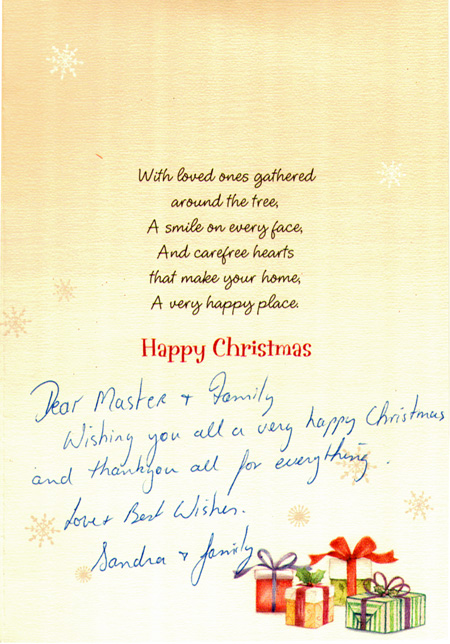 With loved ones gathered
around the tree,
A smile on every face,
And carefree hearts
that make your home,
A very happy place.
Happy Christmas
Dear Master & Family
Wishing you all a very happy Christmas
and thankyou all for everything.
Love & Best Wishes.
Sandra & family